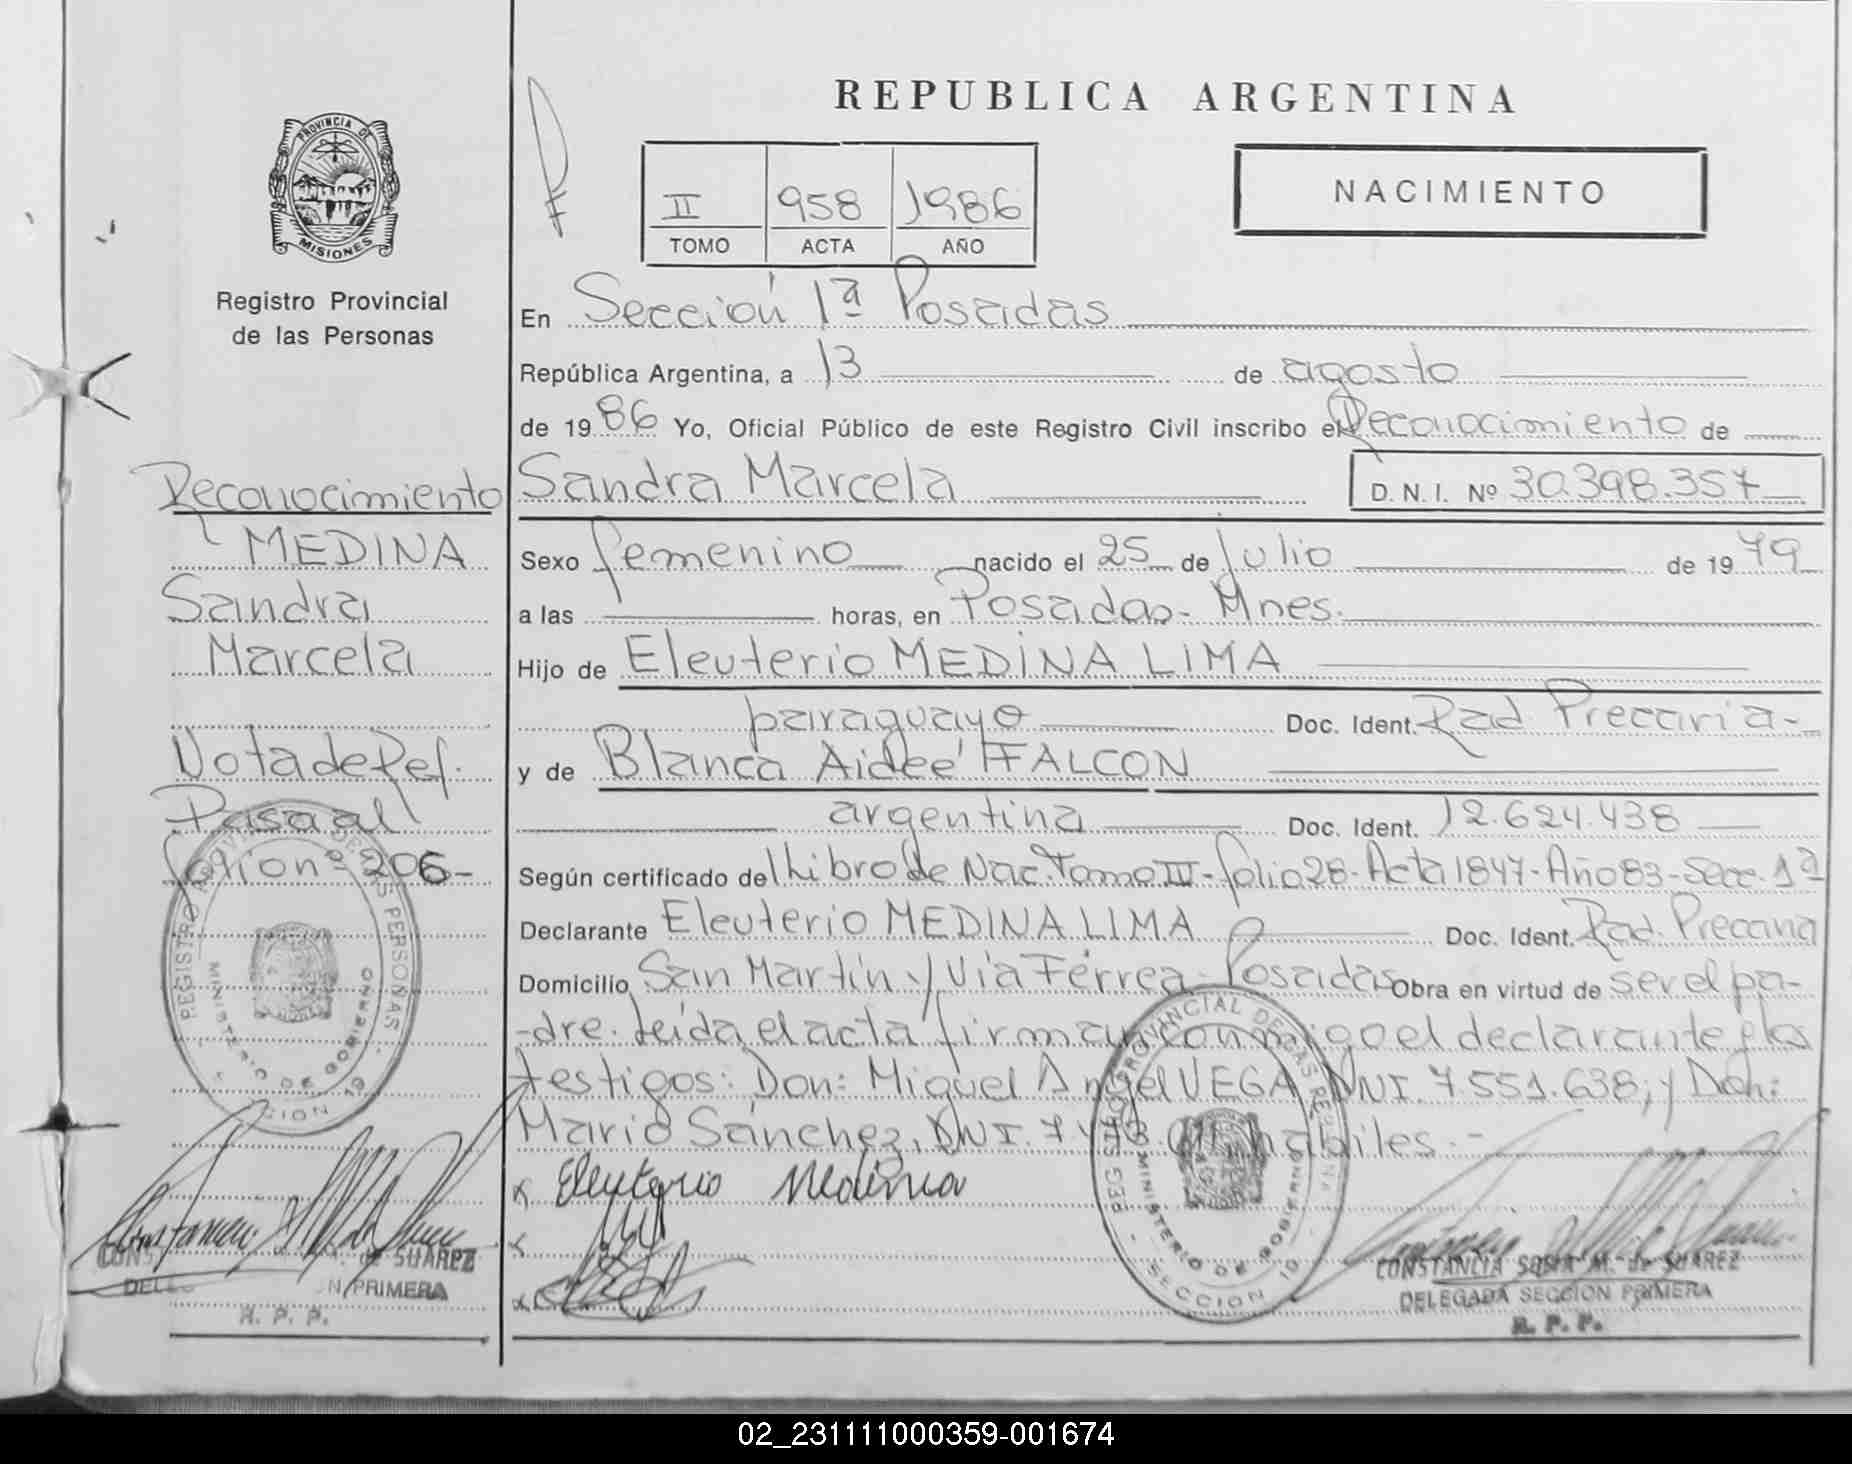 PROVINCIA DE
MISIONES
Registro Provincial
de las Personas
Reconocimiento
MEDINA
Sandra
Marcela
Nota de Ref.
Pasa al
folio nº 206-
REGISTRO PROVINCIAL DE LAS PERSONAS
MINISTERIO DE GOBIERNO
SECCION 1ª
CONS de SUAREZ
DELEG N PRIMERA
R. P. P.
REPUBLICA ARGENTINA
II 958 1986
TOMO ACTA AÑO
NACIMIENTO
En Sección 1ª Posadas
República Argentina, a 13 de agosto
de 1986 Yo, Oficial Público de este Registro Civil inscribo el Reconocimiento de
Sandra Marcela D.N.I. Nº 30.398.357
Sexo femenino nacido el 25 de Julio de 1979
a las horas, en Posadas- Mnes.
Hijo de Eleuterio MEDINA LIMA
paraguayo Doc. Ident. Rad. Precaria-
y de Blanca Aideé FALCON
argentina Doc. Ident. 12.624.438
Según certificado del Libro de Nac. Tomo III- folio 28- Acta 1847- Año 83- Secc. 1ª
Declarante Eleuterio MEDINA LIMA Doc. Ident. Rad. Precaria
Domicilio San Martín y Vía Férrea- Posadas Obra en virtud de ser el pa-
-dre. Leída el acta firman conmigo el declarante y los
testigos: Don: Miguel Angel VEGA DNI. 7.551.638, y Don:
Mario Sánchez, DNI. hábiles.-
x Eleuterio Medina
x
x
REG PROVINCIAL DE LAS PERSONAS
MINISTERIO DE GOBIERNO
SECCION 1ª
CONSTANCIA SOSA M. de SUAREZ
DELEGADA SECCION PRIMERA
R. P. P.
02_231111000359-001674